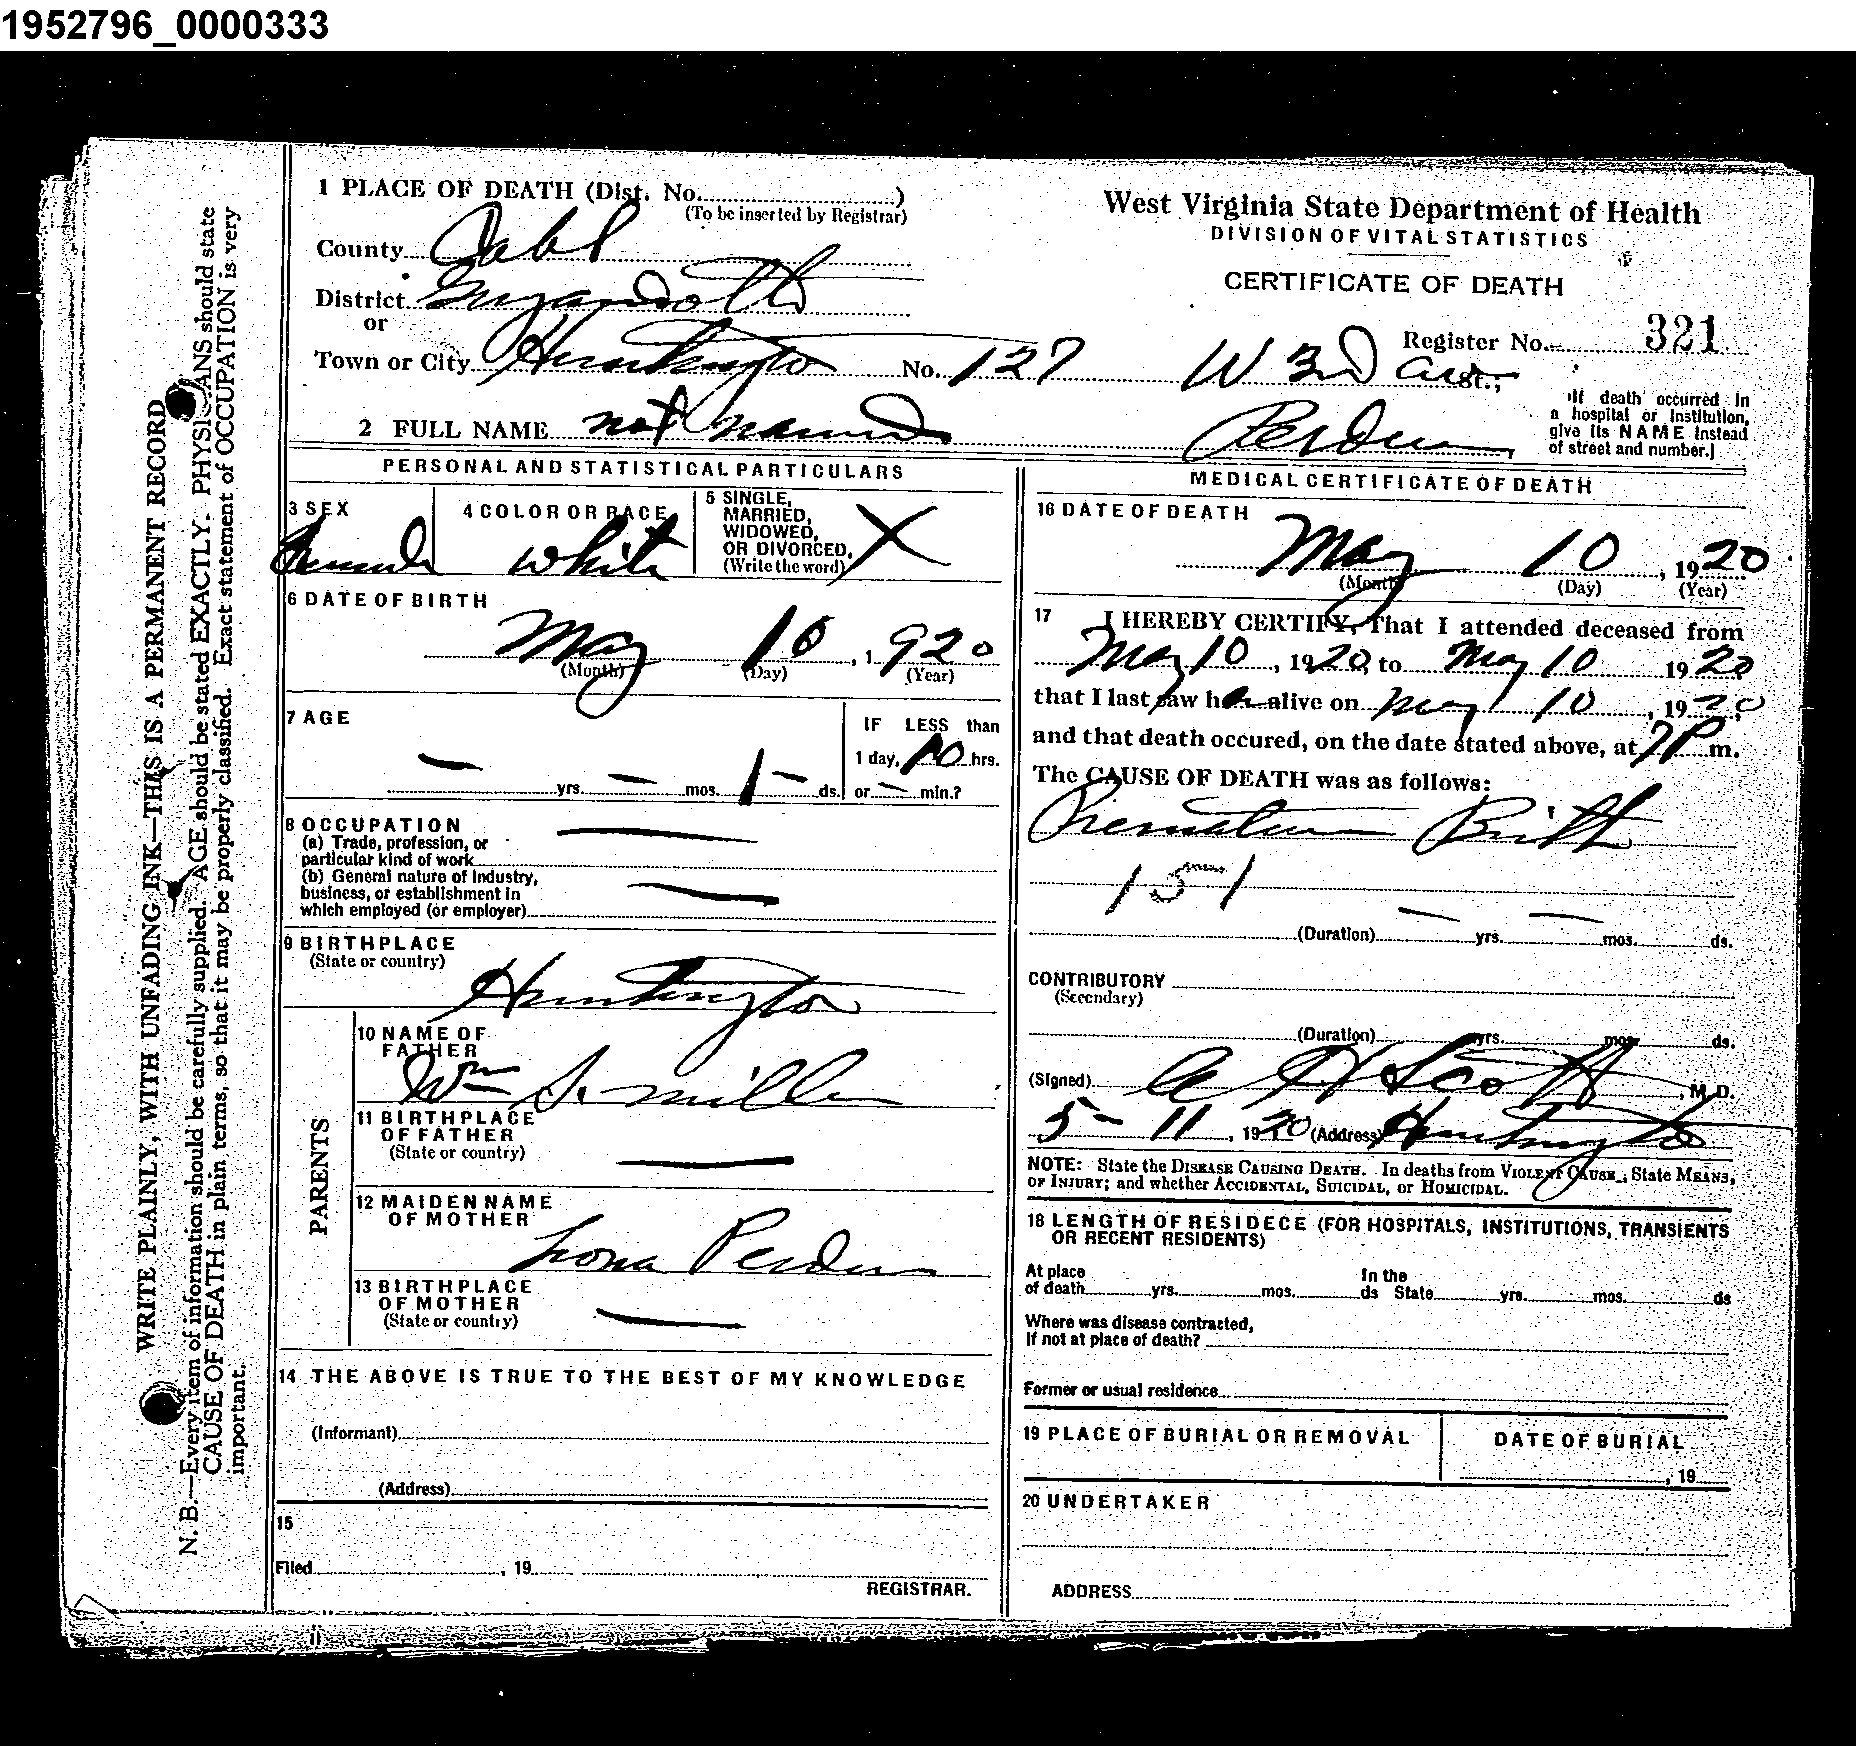 1952796_0000333
1 PLACE OF DEATH (Dist. No. )
(To be inserted by Registrar)
County Cabl
District Guyandotte
or
Town or City Huntington No. 127 W 3rd Ave St.;
2 FULL NAME not named Perdue
West Virginia State Department of Health
DIVISION OF VITAL STATISTICS
CERTIFICATE OF DEATH
Register No. 321
If death occurred in
a hospital or institution,
give its NAME instead
of street and number.]
WRITE PLAINLY, WITH UNFADING INK—THIS IS A PERMANENT RECORD
N. B.—Every item of information should be carefully supplied. AGE should be stated EXACTLY. PHYSICIANS should state
CAUSE OF DEATH in plain terms, so that it may be properly classified. Exact statement of OCCUPATION is very
important.
PERSONAL AND STATISTICAL PARTICULARS
3 SEX Female
4 COLOR OR RACE White
5 SINGLE,
MARRIED,
WIDOWED,
OR DIVORCED,
(Write the word) X
6 DATE OF BIRTH
May 10, 1920
(Month) (Day) (Year)
7 AGE
— yrs. — mos. 1 — ds.
IF LESS than
1 day, 10 hrs.
or — min.?
8 OCCUPATION
(a) Trade, profession, or
particular kind of work —
(b) General nature of Industry,
business, or establishment in
which employed (or employer) —
9 BIRTHPLACE
(State or country)
Huntington
PARENTS
10 NAME OF
FATHER
Wm S. Miller
11 BIRTHPLACE
OF FATHER
(State or country) —
12 MAIDEN NAME
OF MOTHER
Lona Perdue
13 BIRTHPLACE
OF MOTHER
(State or country) —
14 THE ABOVE IS TRUE TO THE BEST OF MY KNOWLEDGE
(Informant)
(Address)
15
Filed , 19
REGISTRAR.
MEDICAL CERTIFICATE OF DEATH
16 DATE OF DEATH
May 10, 1920
(Month) (Day) (Year)
17 I HEREBY CERTIFY, That I attended deceased from
May 10, 1920, to May 10 1920
that I last saw her alive on May 10, 1920,
and that death occured, on the date stated above, at 7 P m.
The CAUSE OF DEATH was as follows:
Premature Birth
151
(Duration) — yrs. — mos. ds.
CONTRIBUTORY
(Secondary)
(Duration) yrs. mos. ds.
(Signed) A H Scott, M. D.
5-11, 1920 (Address) Huntington
NOTE: State the DISEASE CAUSING DEATH. In deaths from VIOLENT CAUSE, State MEANS,
OF INJURY; and whether ACCIDENTAL, SUICIDAL, or HOMICIDAL.
18 LENGTH OF RESIDECE (FOR HOSPITALS, INSTITUTIONS, TRANSIENTS
OR RECENT RESIDENTS)
At place
of death yrs. mos. ds
In the
State yrs. mos. ds
Where was disease contracted,
If not at place of death?
Former or usual residence
19 PLACE OF BURIAL OR REMOVAL
DATE OF BURIAL
, 19
20 UNDERTAKER
ADDRESS